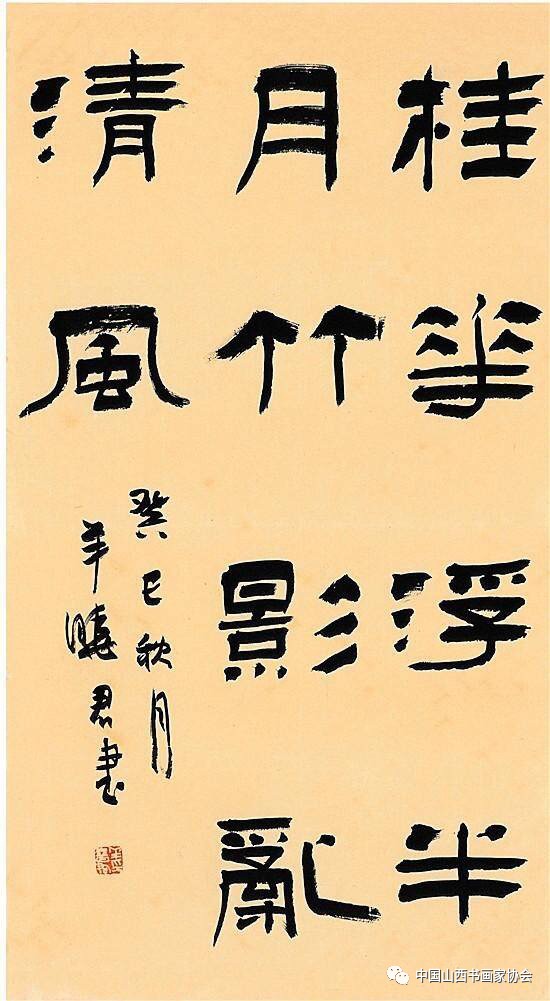 桂花浮半
月竹影亂
清風
癸巳秋月
羊曉君書
中国山西书画家协会